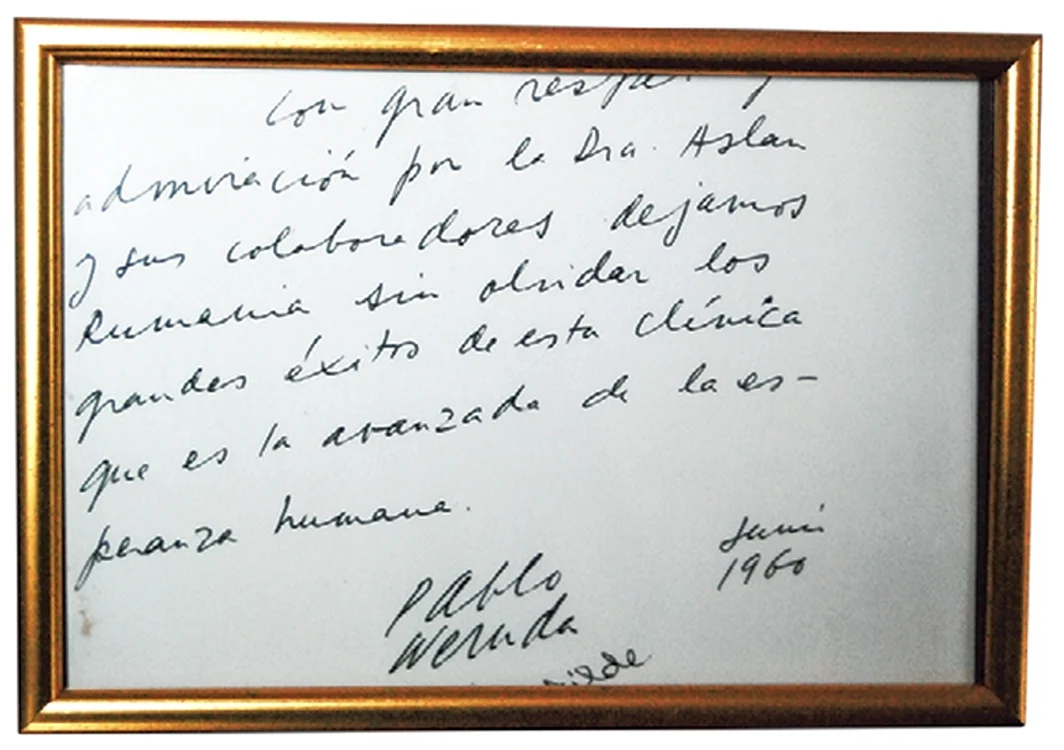 con gran
admiración por la Dra. Aslan
y sus colaboradores dejamos
Rumania sin olvidar los
grandes éxitos de esta clínica
que es la avanzada de la es-
peranza humana.
Junio
1960
Pablo
Neruda